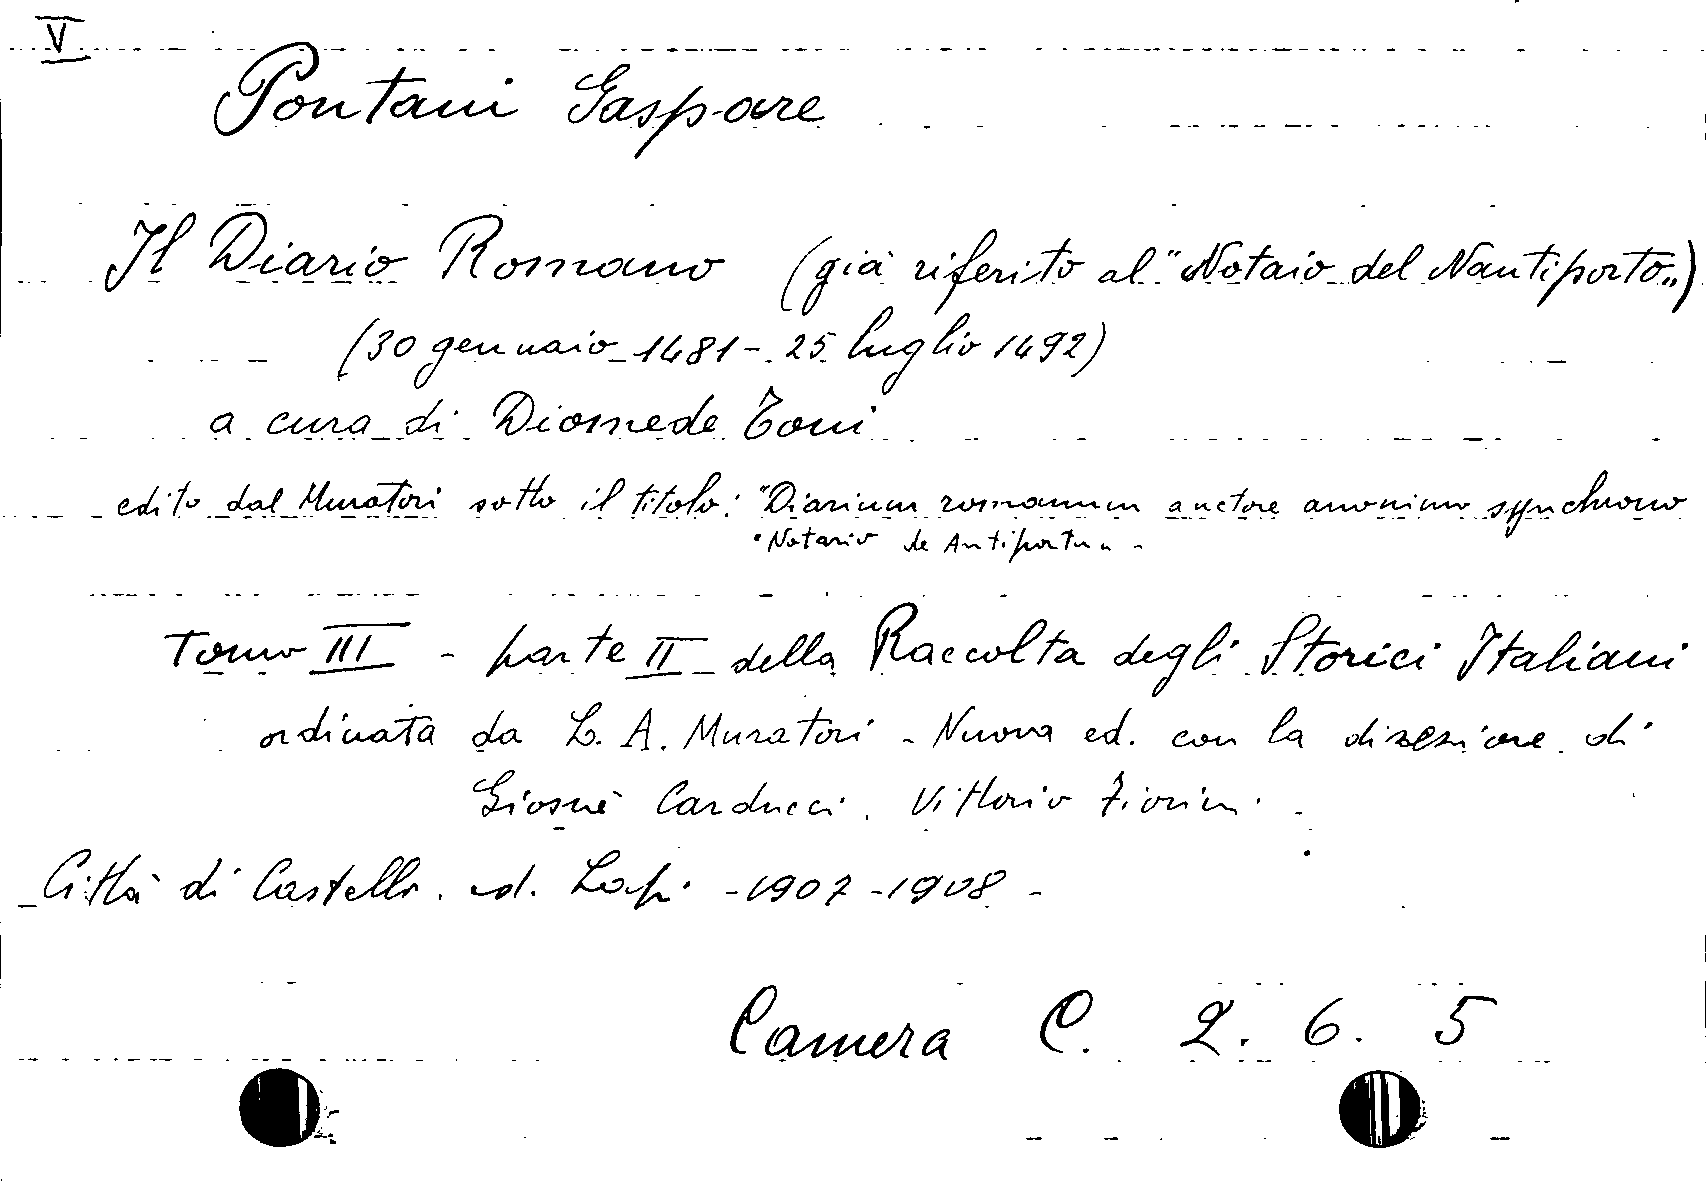 V
Pontani Gaspare
Il Diario Romano (già riferito al "Notaio del Nantiporto„)
(30 gennaio 1481 - 25 luglio 1492)
a cura di Diomede Toni
edito dal Muratori sotto il titolo: "Diarium romanum auctore anonimo synchrono
"Notario de Antiportu„ -
Tomo III - parte II della Raccolta degli Storici Italiani
ordinata da L. A. Muratori - Nuova ed. con la direzione di
Giosuè Carducci. Vittorio Fiorini.
Città di Castello. ed. Lapi - 1907 - 1908 -
Camera C. 2. 6. 5